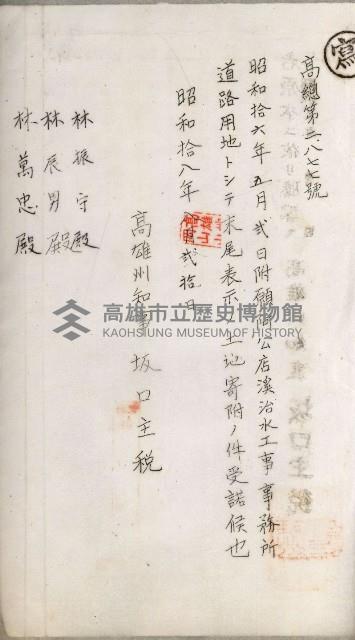 寫
高總第三八七七號
昭和拾六年五月弍日附願阿公店溪治水工事事務所
道路用地トシテ末尾表示ノ土地寄附ノ件受諾候也
昭和拾八年 月弍拾日
高雄州知事 坂口主税
林振守殿
林辰男殿
林萬忠殿
高雄市立歷史博物館
KAOHSIUNG MUSEUM OF HISTORY